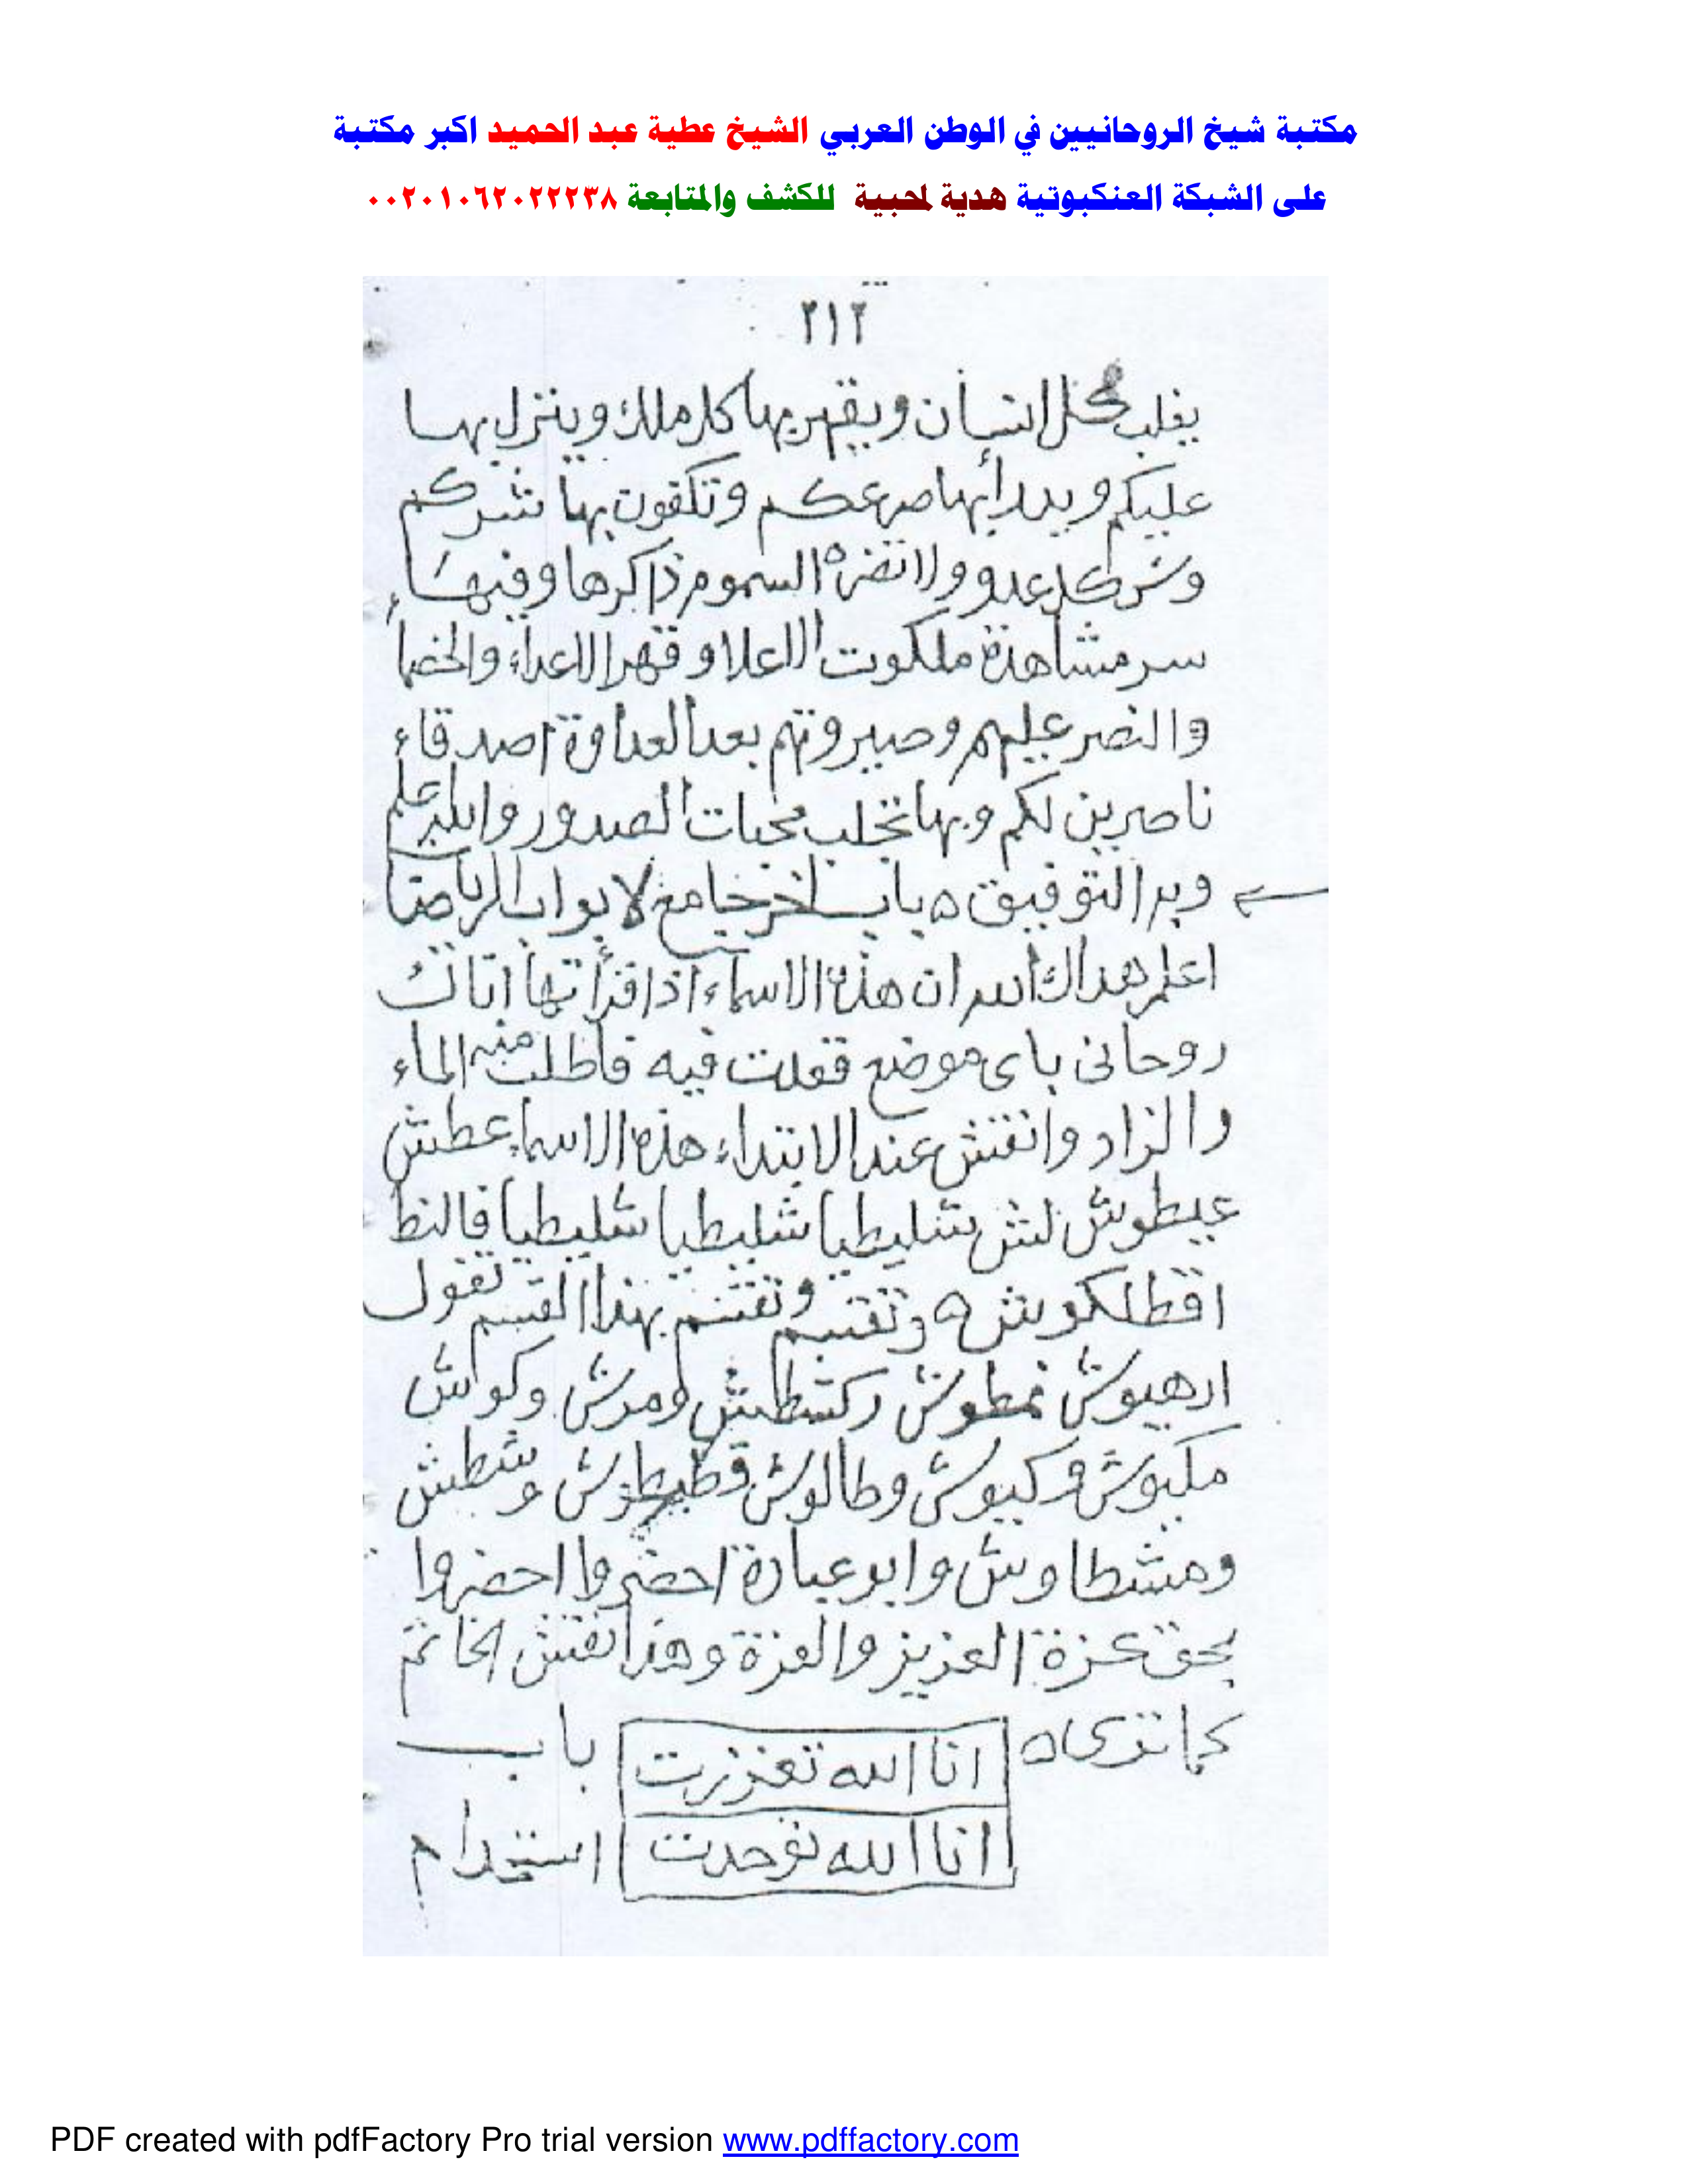 مكتبة شيخ الروحانيين في الوطن العربي الشيخ عطية عبد الحميد اكبر مكتبة
على الشبكة العنكبوتية هدية لمحبية للكشف والمتابعة ٠٠٢٠١٠٦٢٠٢٢٢٣٨
٢١٢
يغلب كل انسان ويقهر بها كل ملك وينزل بها
عليكم ويدرأ بها صرعكم وتكفون بها شركم
وشر كل عدو ولا تضره السموم ذاكرها وفيها
سر مشاهدة ملكوت الاعلا وقهر الاعداء والخصماء
والنصر عليهم وصيروتهم بعد العداوة اصدقاء
ناصرين لكم وبها تجلب محبات الصدور والله اعلم
وبه التوفيق ه باب اخر جامع لابواب الرياضات
اعلم هداك الله ان هذه الاسماء اذا قرأتها اتاك
روحانى باى موضع قعدت فيه فاطلب منه الماء
والزاد وانقش عند الابتداء هذه الاسماء عطش
عيطوش لش شليطيا شليطيا شليطيا فالنط
اقطلكويش ه وتقسم وتقسم بهذا القسم تقول
ارهيوش نمطوش ركشطليش ومرش وكواش
مكيوش وركيوش وطالوش وشطش
ومشطاوش وابو عبادة احضروا احضروا
بحق عزة العزيز والعزة وهذا نقش الخاتم
كما ترى ه انا الله تعززت باب
انا الله توحدت استخدام
PDF created with pdfFactory Pro trial version www.pdffactory.com